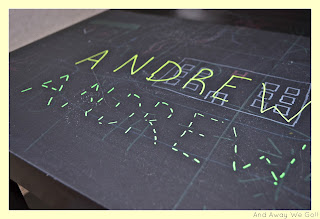 ANDREW
ANDREW
And Away We Go!!